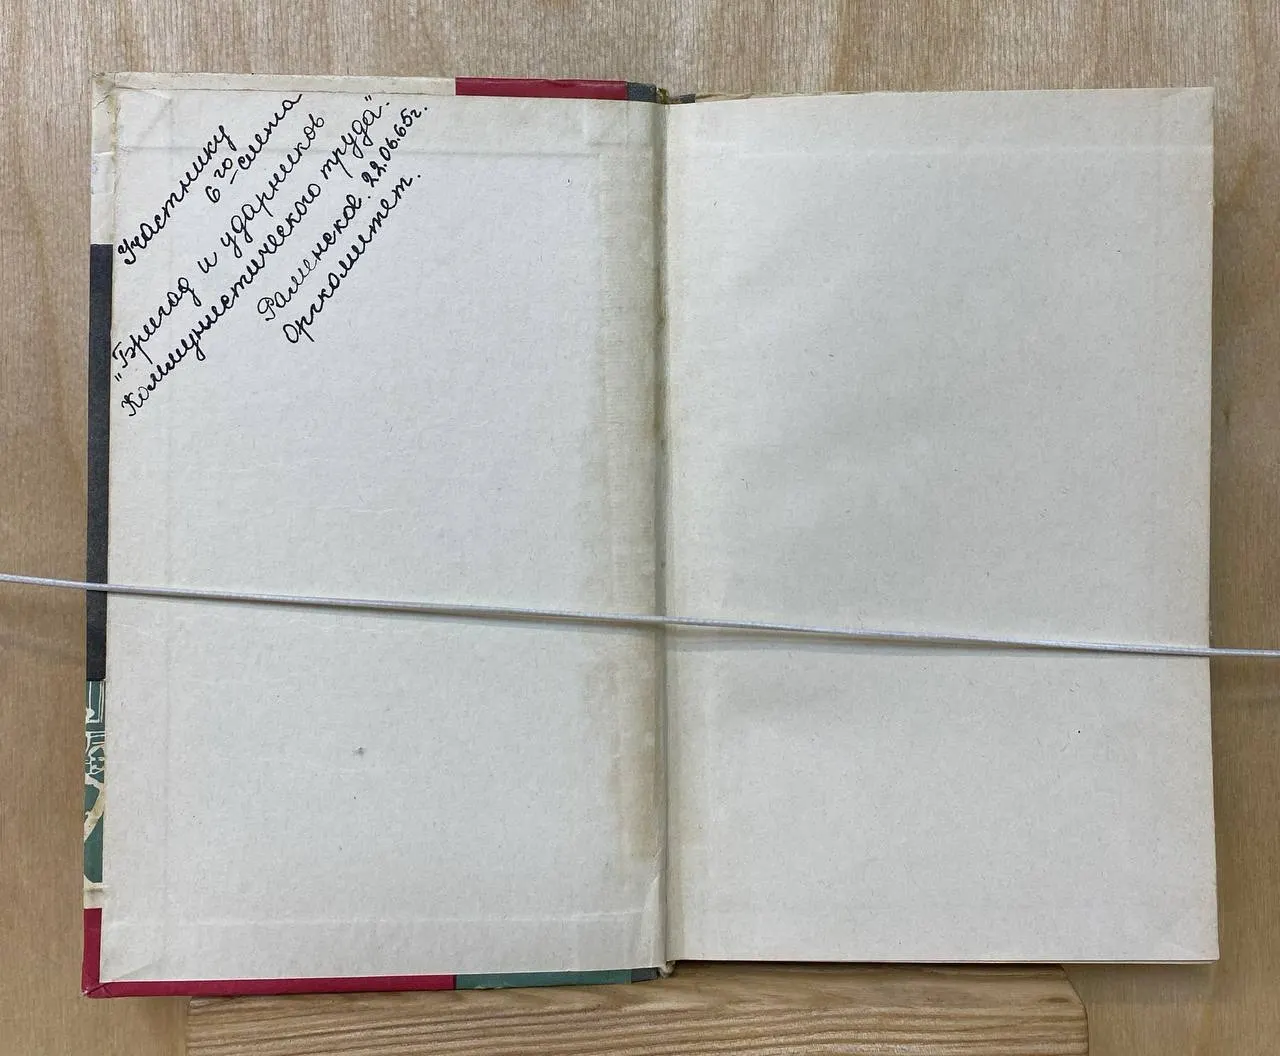 Участнику
6го слета
„Бригад и ударников
Коммунистического труда".
Раменское. 22.06.65г.
Оргкомитет.